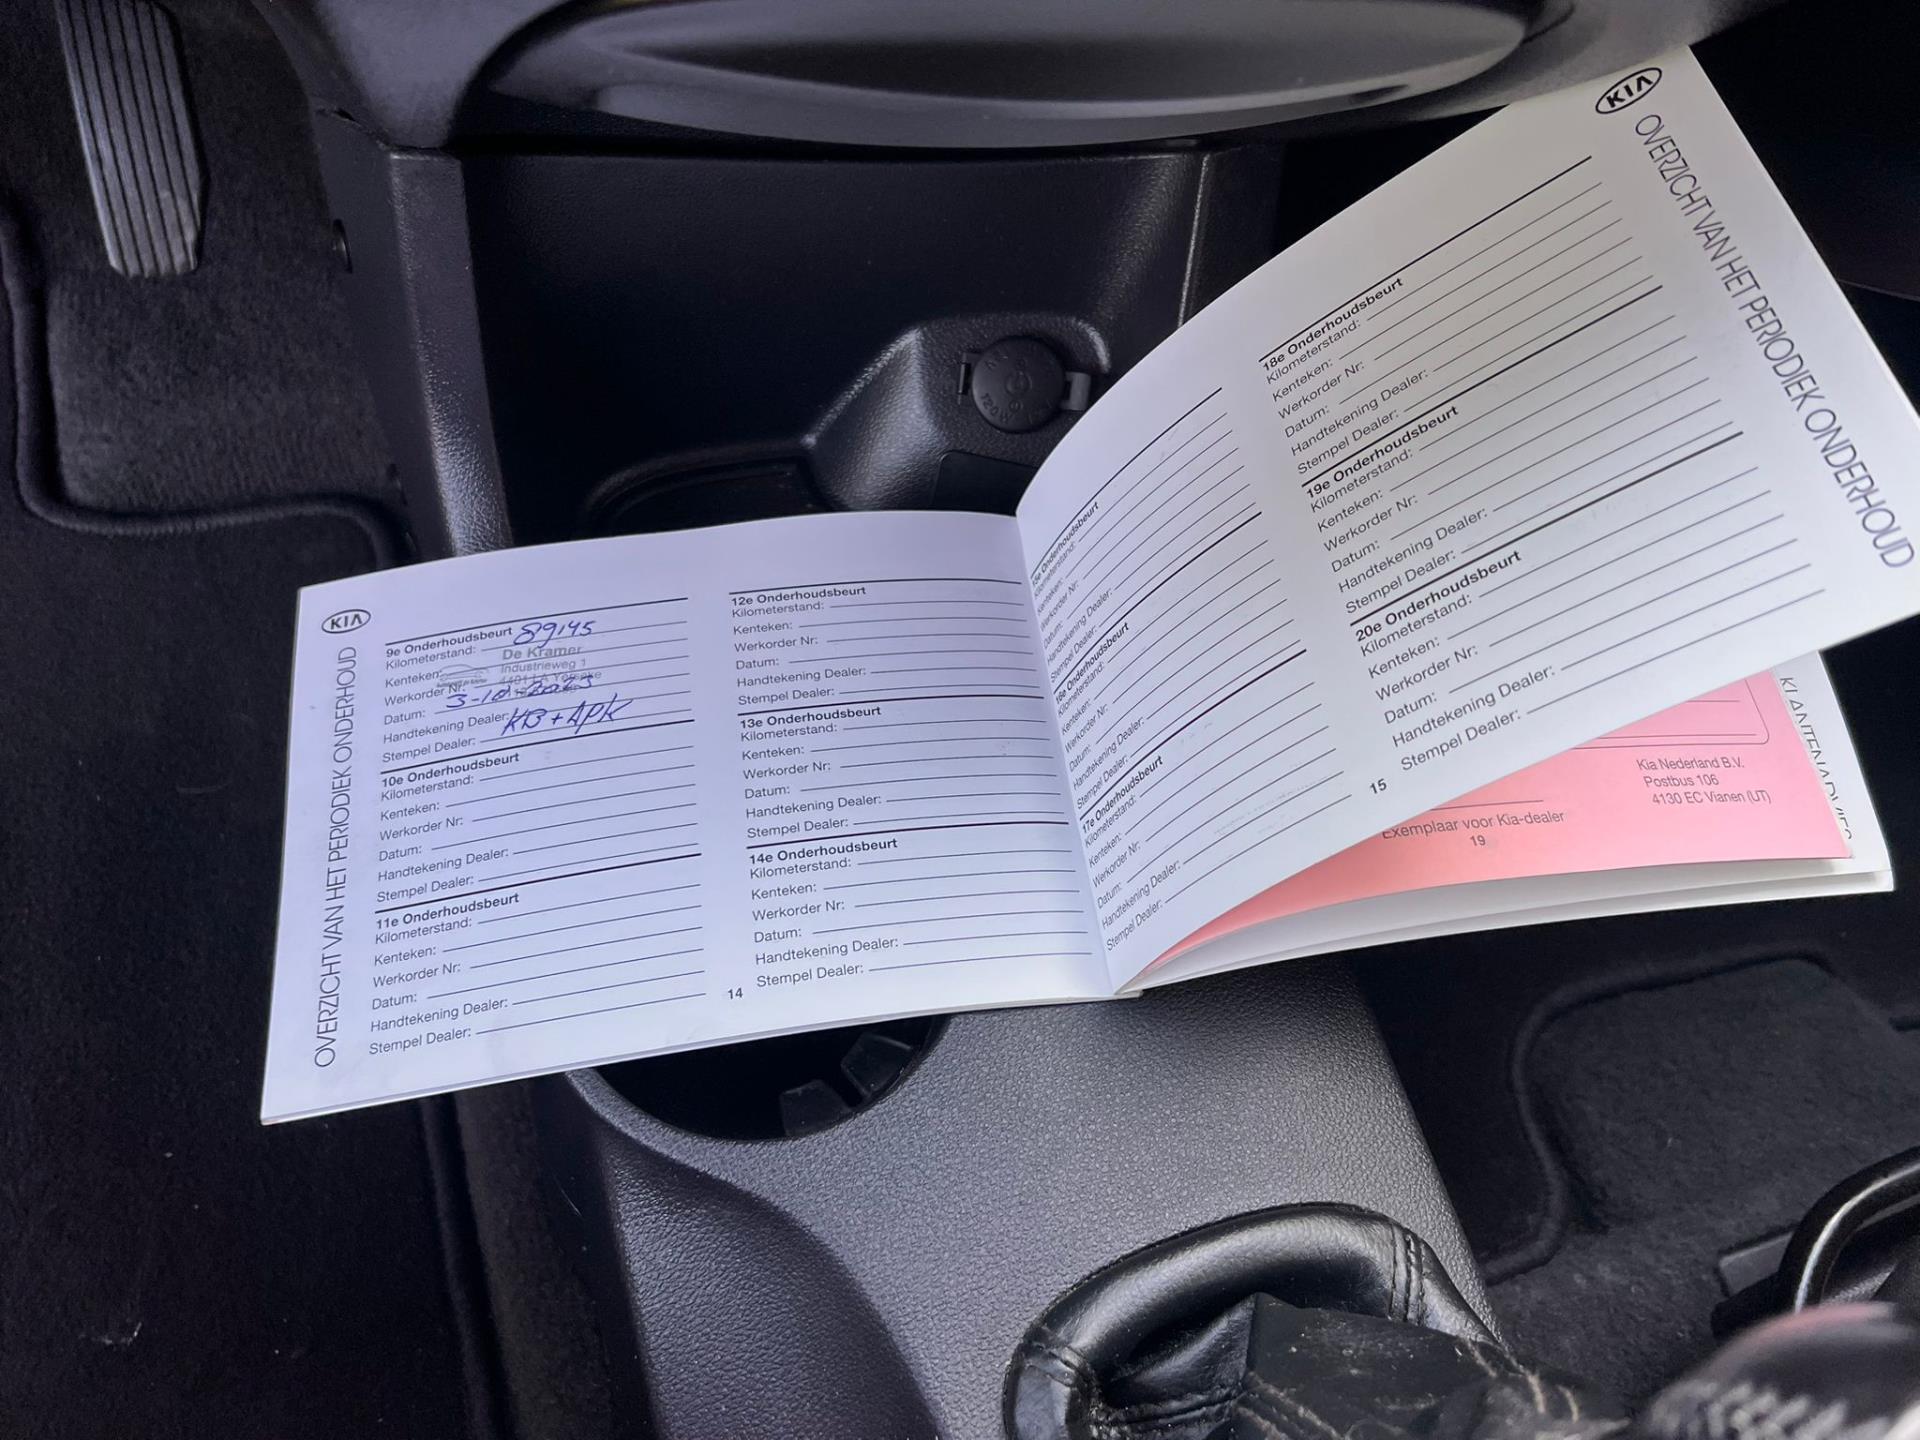 KIA
OVERZICHT VAN HET PERIODIEK ONDERHOUD
9e Onderhoudsbeurt
Kilometerstand: 89145
De Kramer
Industrieweg 1
Kenteken:
Werkorder Nr:
Datum: 3-10-2023
Handtekening Dealer: KB + APK
Stempel Dealer:
10e Onderhoudsbeurt
Kilometerstand:
Kenteken:
Werkorder Nr:
Datum:
Handtekening Dealer:
Stempel Dealer:
11e Onderhoudsbeurt
Kilometerstand:
Kenteken:
Werkorder Nr:
Datum:
Handtekening Dealer:
Stempel Dealer:
12e Onderhoudsbeurt
Kilometerstand:
Kenteken:
Werkorder Nr:
Datum:
Handtekening Dealer:
Stempel Dealer:
13e Onderhoudsbeurt
Kilometerstand:
Kenteken:
Werkorder Nr:
Datum:
Handtekening Dealer:
Stempel Dealer:
14e Onderhoudsbeurt
Kilometerstand:
Kenteken:
Werkorder Nr:
Datum:
Handtekening Dealer:
Stempel Dealer:
14
15e Onderhoudsbeurt
Kilometerstand:
Kenteken:
Werkorder Nr:
Datum:
Handtekening Dealer:
Stempel Dealer:
16e Onderhoudsbeurt
Kilometerstand:
Kenteken:
Werkorder Nr:
Datum:
Handtekening Dealer:
Stempel Dealer:
17e Onderhoudsbeurt
Kilometerstand:
Kenteken:
Werkorder Nr:
Datum:
Handtekening Dealer:
Stempel Dealer:
18e Onderhoudsbeurt
Kilometerstand:
Kenteken:
Werkorder Nr:
Datum:
Handtekening Dealer:
Stempel Dealer:
19e Onderhoudsbeurt
Kilometerstand:
Kenteken:
Werkorder Nr:
Datum:
Handtekening Dealer:
Stempel Dealer:
20e Onderhoudsbeurt
Kilometerstand:
Kenteken:
Werkorder Nr:
Datum:
Handtekening Dealer:
Stempel Dealer:
15
KIA
OVERZICHT VAN HET PERIODIEK ONDERHOUD
Kia Nederland B.V.
Postbus 106
4130 EC Vianen (UT)
Exemplaar voor Kia-dealer
19